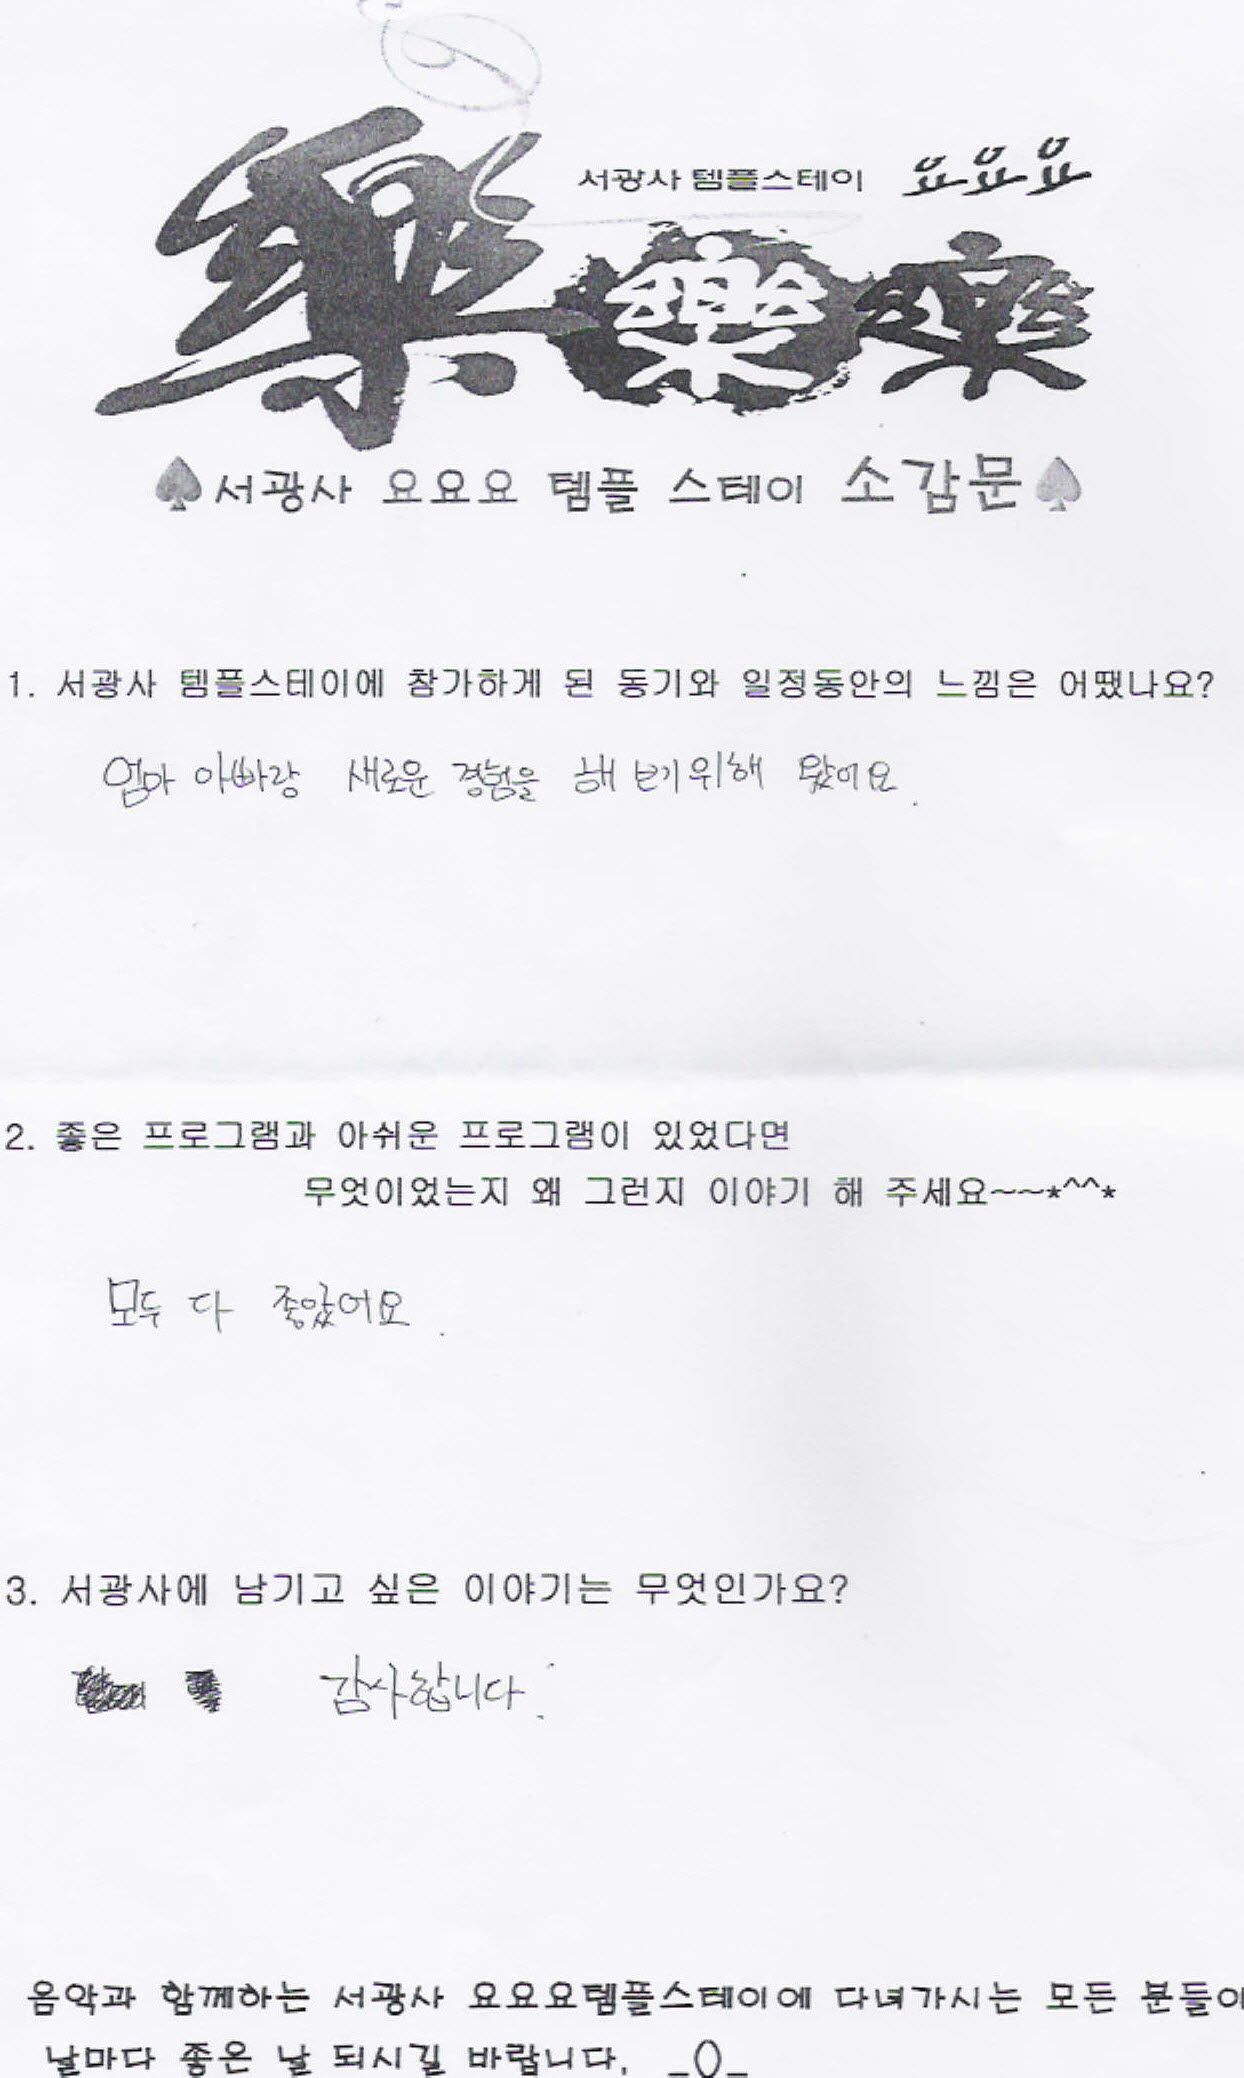 서광사 템플스테이 요요요
樂 樂 樂
♠서광사 요요요 템플 스테이 소감문♠
1. 서광사 템플스테이에 참가하게 된 동기와 일정동안의 느낌은 어땠나요?
엄마 아빠랑 새로운 경험을 해 보기위해 왔어요.
2. 좋은 프로그램과 아쉬운 프로그램이 있었다면
무엇이었는지 왜 그런지 이야기 해 주세요~~*^^*
모두 다 좋았어요.
3. 서광사에 남기고 싶은 이야기는 무엇인가요?
감사합니다.
음악과 함께하는 서광사 요요요템플스테이에 다녀가시는 모든 분들이
날마다 좋은 날 되시길 바랍니다. _()_